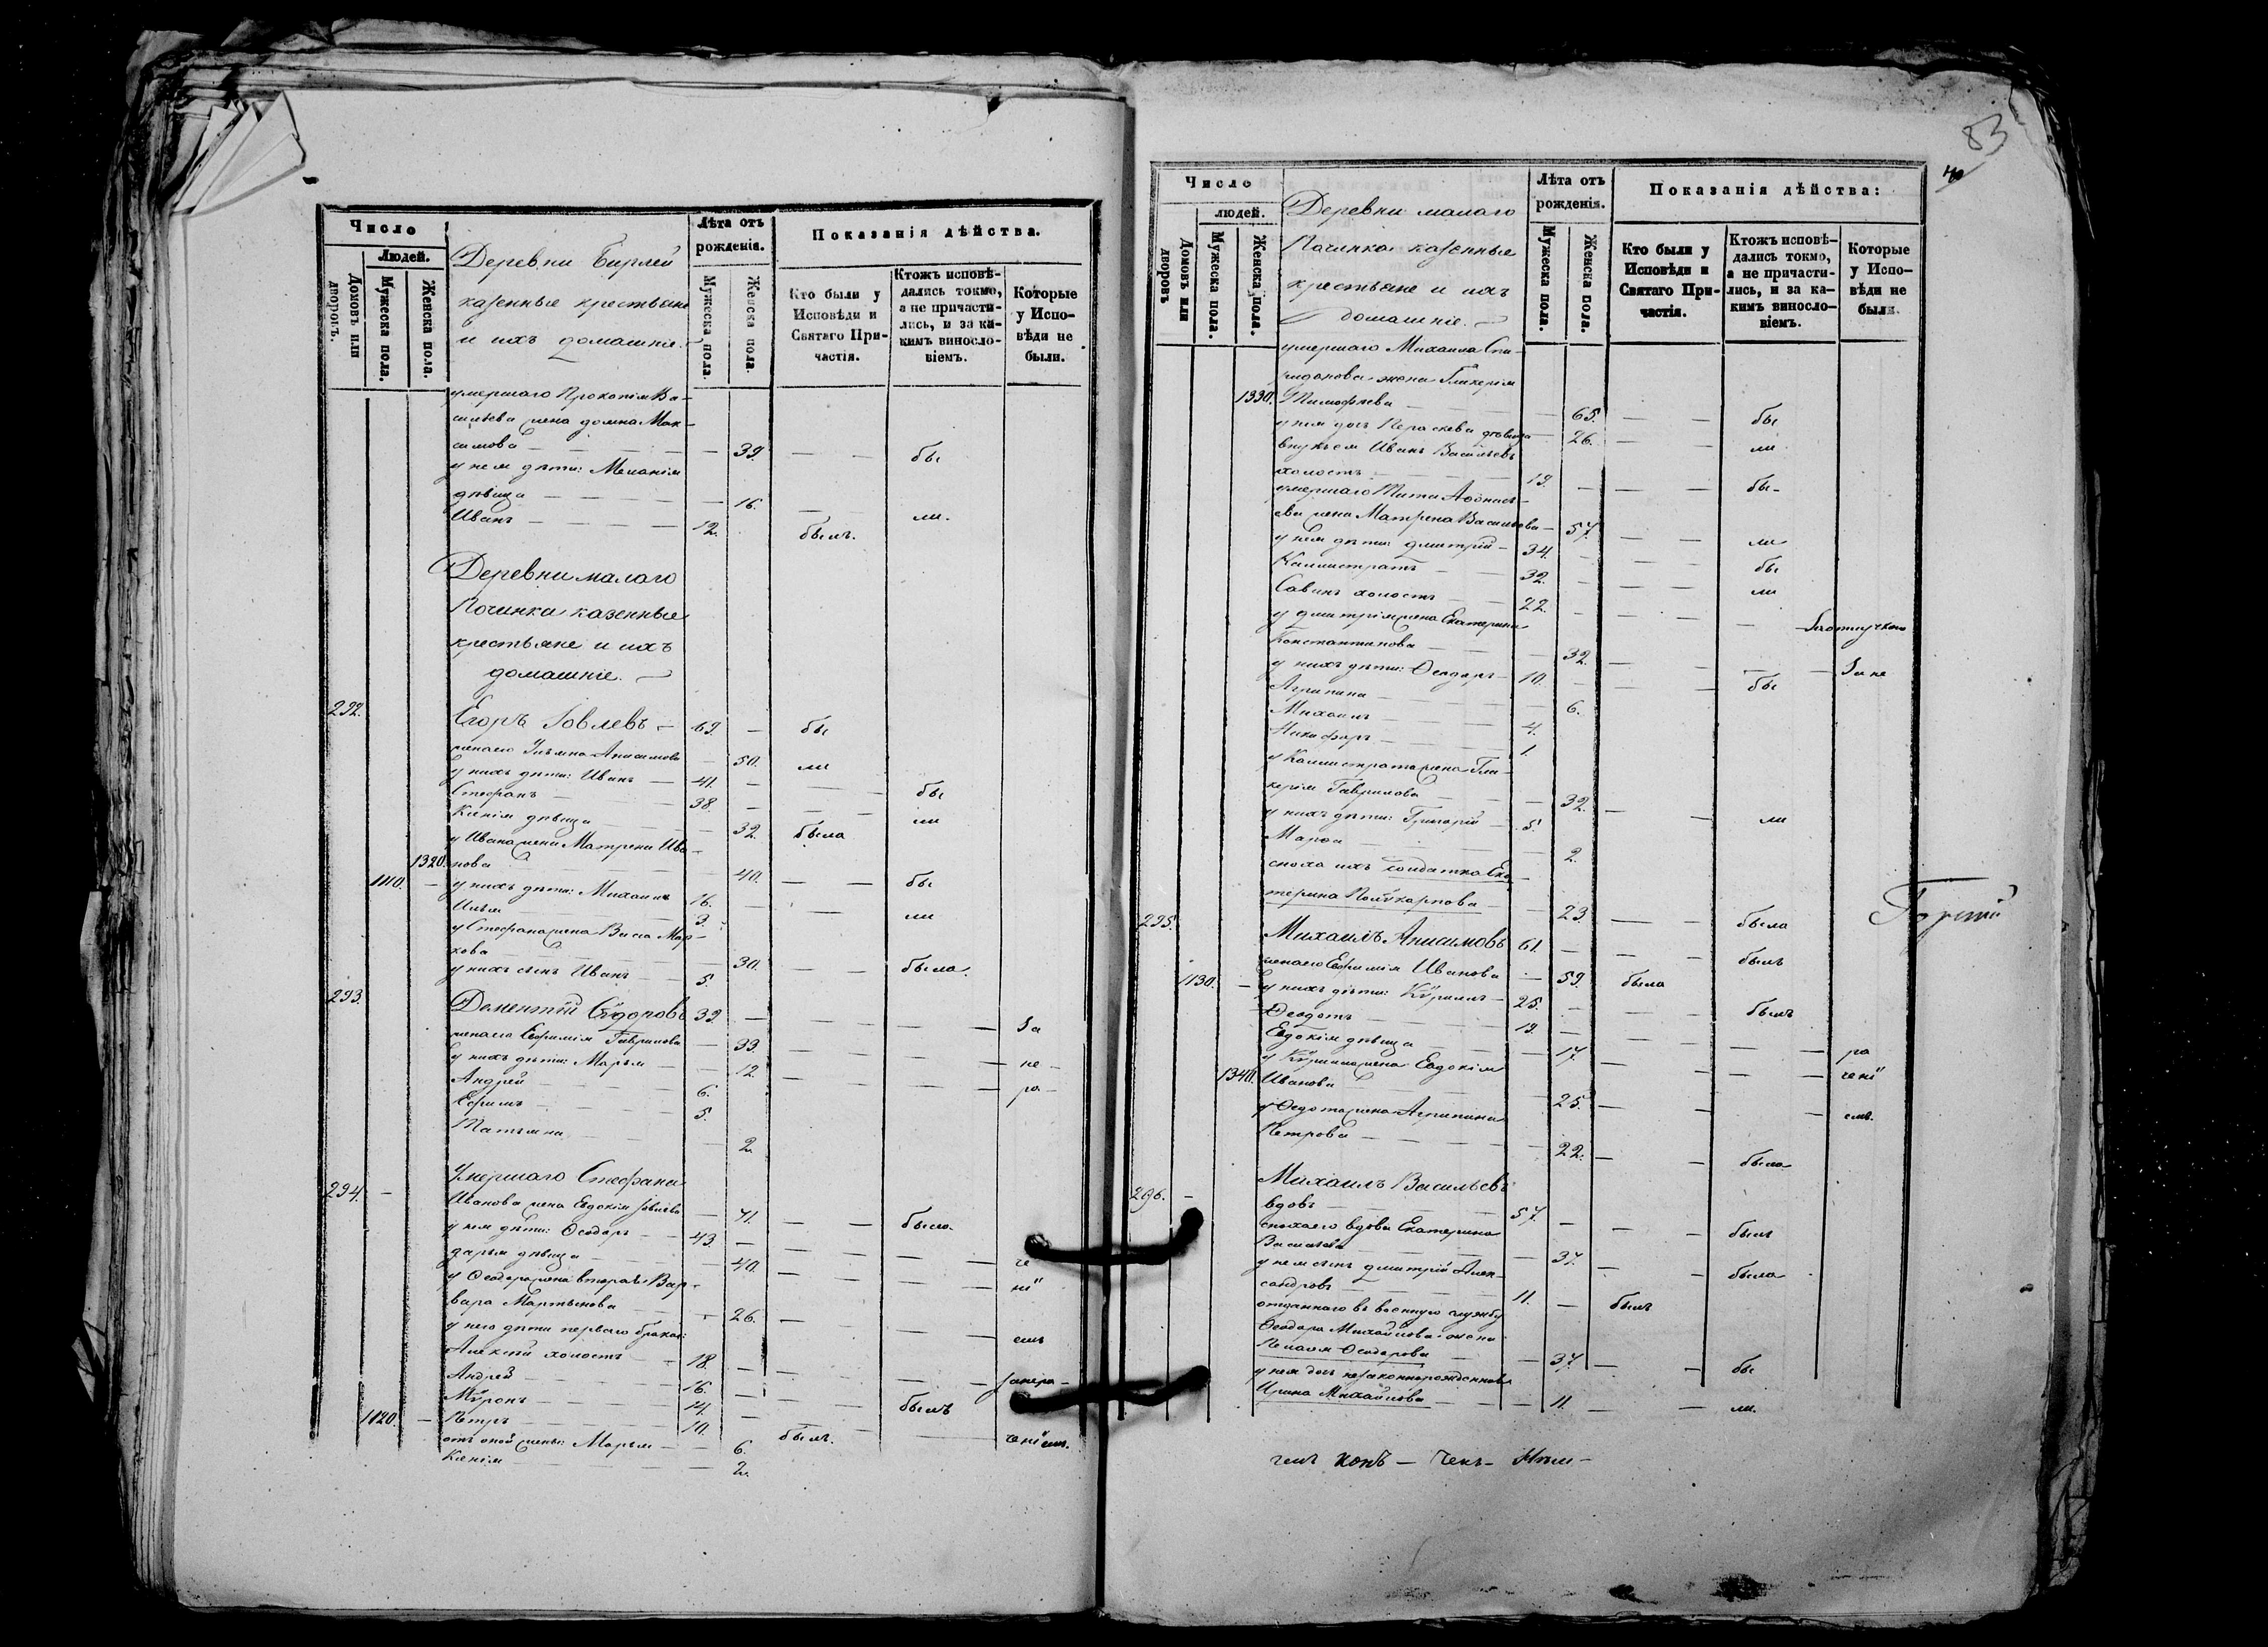 Число
Людей.
Домовъ или дворовъ.
Мужеска пола.
Женска пола.
Деревни Бирлей
казенные крестьяне
и ихъ домашніе.
Лѣта отъ рожденія.
Мужеска пола.
Женска пола.
Показанія дѣйства.
Кто были у Исповѣди и Святаго Причастія.
Ктожъ исповѣдались токмо, а не причастились, и за какимъ винословіемъ.
Которые у Исповѣди не были.
умершаго Прокопія Ва-
сильева жена домна Мак-
симова — 39. — — бы
у нея дѣти: Меланія
дѣвица — 16. — ли.
Иванъ — 12. былъ.
Деревни малаго
Починка казенные
крестьяне и ихъ
домашніе.
292. Егоръ Іовлевъ — 69. — бы
жена его Ульяна Анисимова — 50. ли
у нихъ дѣти: Иванъ — 41. — бы
Стефанъ — 38. — ли
Ксенія дѣвица — 32. была
у Ивана жена Матрена Ива-
1320. нова — 40. — — бы
1110. — у нихъ дѣти: Михаилъ 16. — ли
Илья — 3.
у Стефана жена Васса Мар-
кова — 30. — — была.
у нихъ сынъ Иванъ — 5.
293. Дементій Сидоровъ 39. — — За
жена его Евфимія Гаврилова — 33. — не —
у нихъ дѣти: Марья — 12. — ра —
Андрей — 6.
Ефимъ — 5.
Татьяна — 2.
294. — Умершаго Стефана
Иванова жена Евдокія Іовлева — 71. — — была.
у нея дѣти: Ѳеодоръ — 43. — че
дарья дѣвица — 40. — ні
у Ѳеодора жена вторая Вар-
вара Мартынова — 26. — емъ
у него дѣти перваго брака:
Алексѣй холостъ — 18. — занера —
Андрей — 16. — былъ
Миронъ — 14.
1120. — Петръ — 10. былъ. — ченіемъ.
отъ оной жены: Марья — 6.
Ксенія — 2.
83
Число
людей.
Домовъ или дворовъ
Мужеска пола.
Женска пола.
Деревни малаго
Починка казенные
крестьяне и ихъ
домашніе.
Лѣта отъ рожденія.
Мужеска пола.
Женска пола.
Показанія дѣйства:
Кто были у Исповѣди и Святаго Причастія.
Ктожъ исповѣдались токмо, а не причастились, и за какимъ винословіемъ.
Которые у Исповѣди не были.
умершаго Михаила Спи-
ридонова жена Гликерія
1330. Тимофѣева — 65. — — бы
у нея дочь Параскева дѣвица — 26. — ли
внукъ ея Иванъ Васильевъ
холостъ — 19. — — бы-
умершаго Тита Аѳонась-
ева жена Матрена Васильева — 57. — — ли
у нея дѣти: дмитрій — 34. — бы
Каллистратъ — 32. — ли
Савинъ холостъ — 22. — За отлучкою
у дмитрія жена Екатерина
Константинова — 32. — За не
у нихъ дѣти: Ѳеодоръ — 10. — бы
Агрипина — 6.
Михаилъ — 4.
Никифоръ — 1.
у Каллистрата жена Гли-
керія Гаврилова — 32. — — ли
у нихъ дѣти: Григорій — 5.
Марѳа — 2.
сноха ихъ солдатка Ека-
терина Поликарпова — 23. — — была
295. Михаилъ Анисимовъ 61. — былъ
жена его Евфимія Иванова — 59. была
1130. — у нихъ дѣти: Кириллъ — 25. — былъ
Ѳеодотъ — 19. —
Евдокія дѣвица — 17. — ра
у Кирилла жена Евдокія — чені
1340. Иванова — 25. — емъ.
у Ѳедота жена Агрипина
Петрова — 22. — — была
296. — Михаилъ Васильевъ
вдовъ — 57. — былъ
сноха его вдова Екатерина
Васильева — 37. — была
у нея сынъ дмитрій Алек-
сандровъ — 11. — былъ
отданнаго въ военную службу
Ѳеодора Михайлова жена
Пелагія Ѳеодорова — 37. — — бы
у нея дочь незаконнорожденная
Ирина Михайлова — 11. — ли.